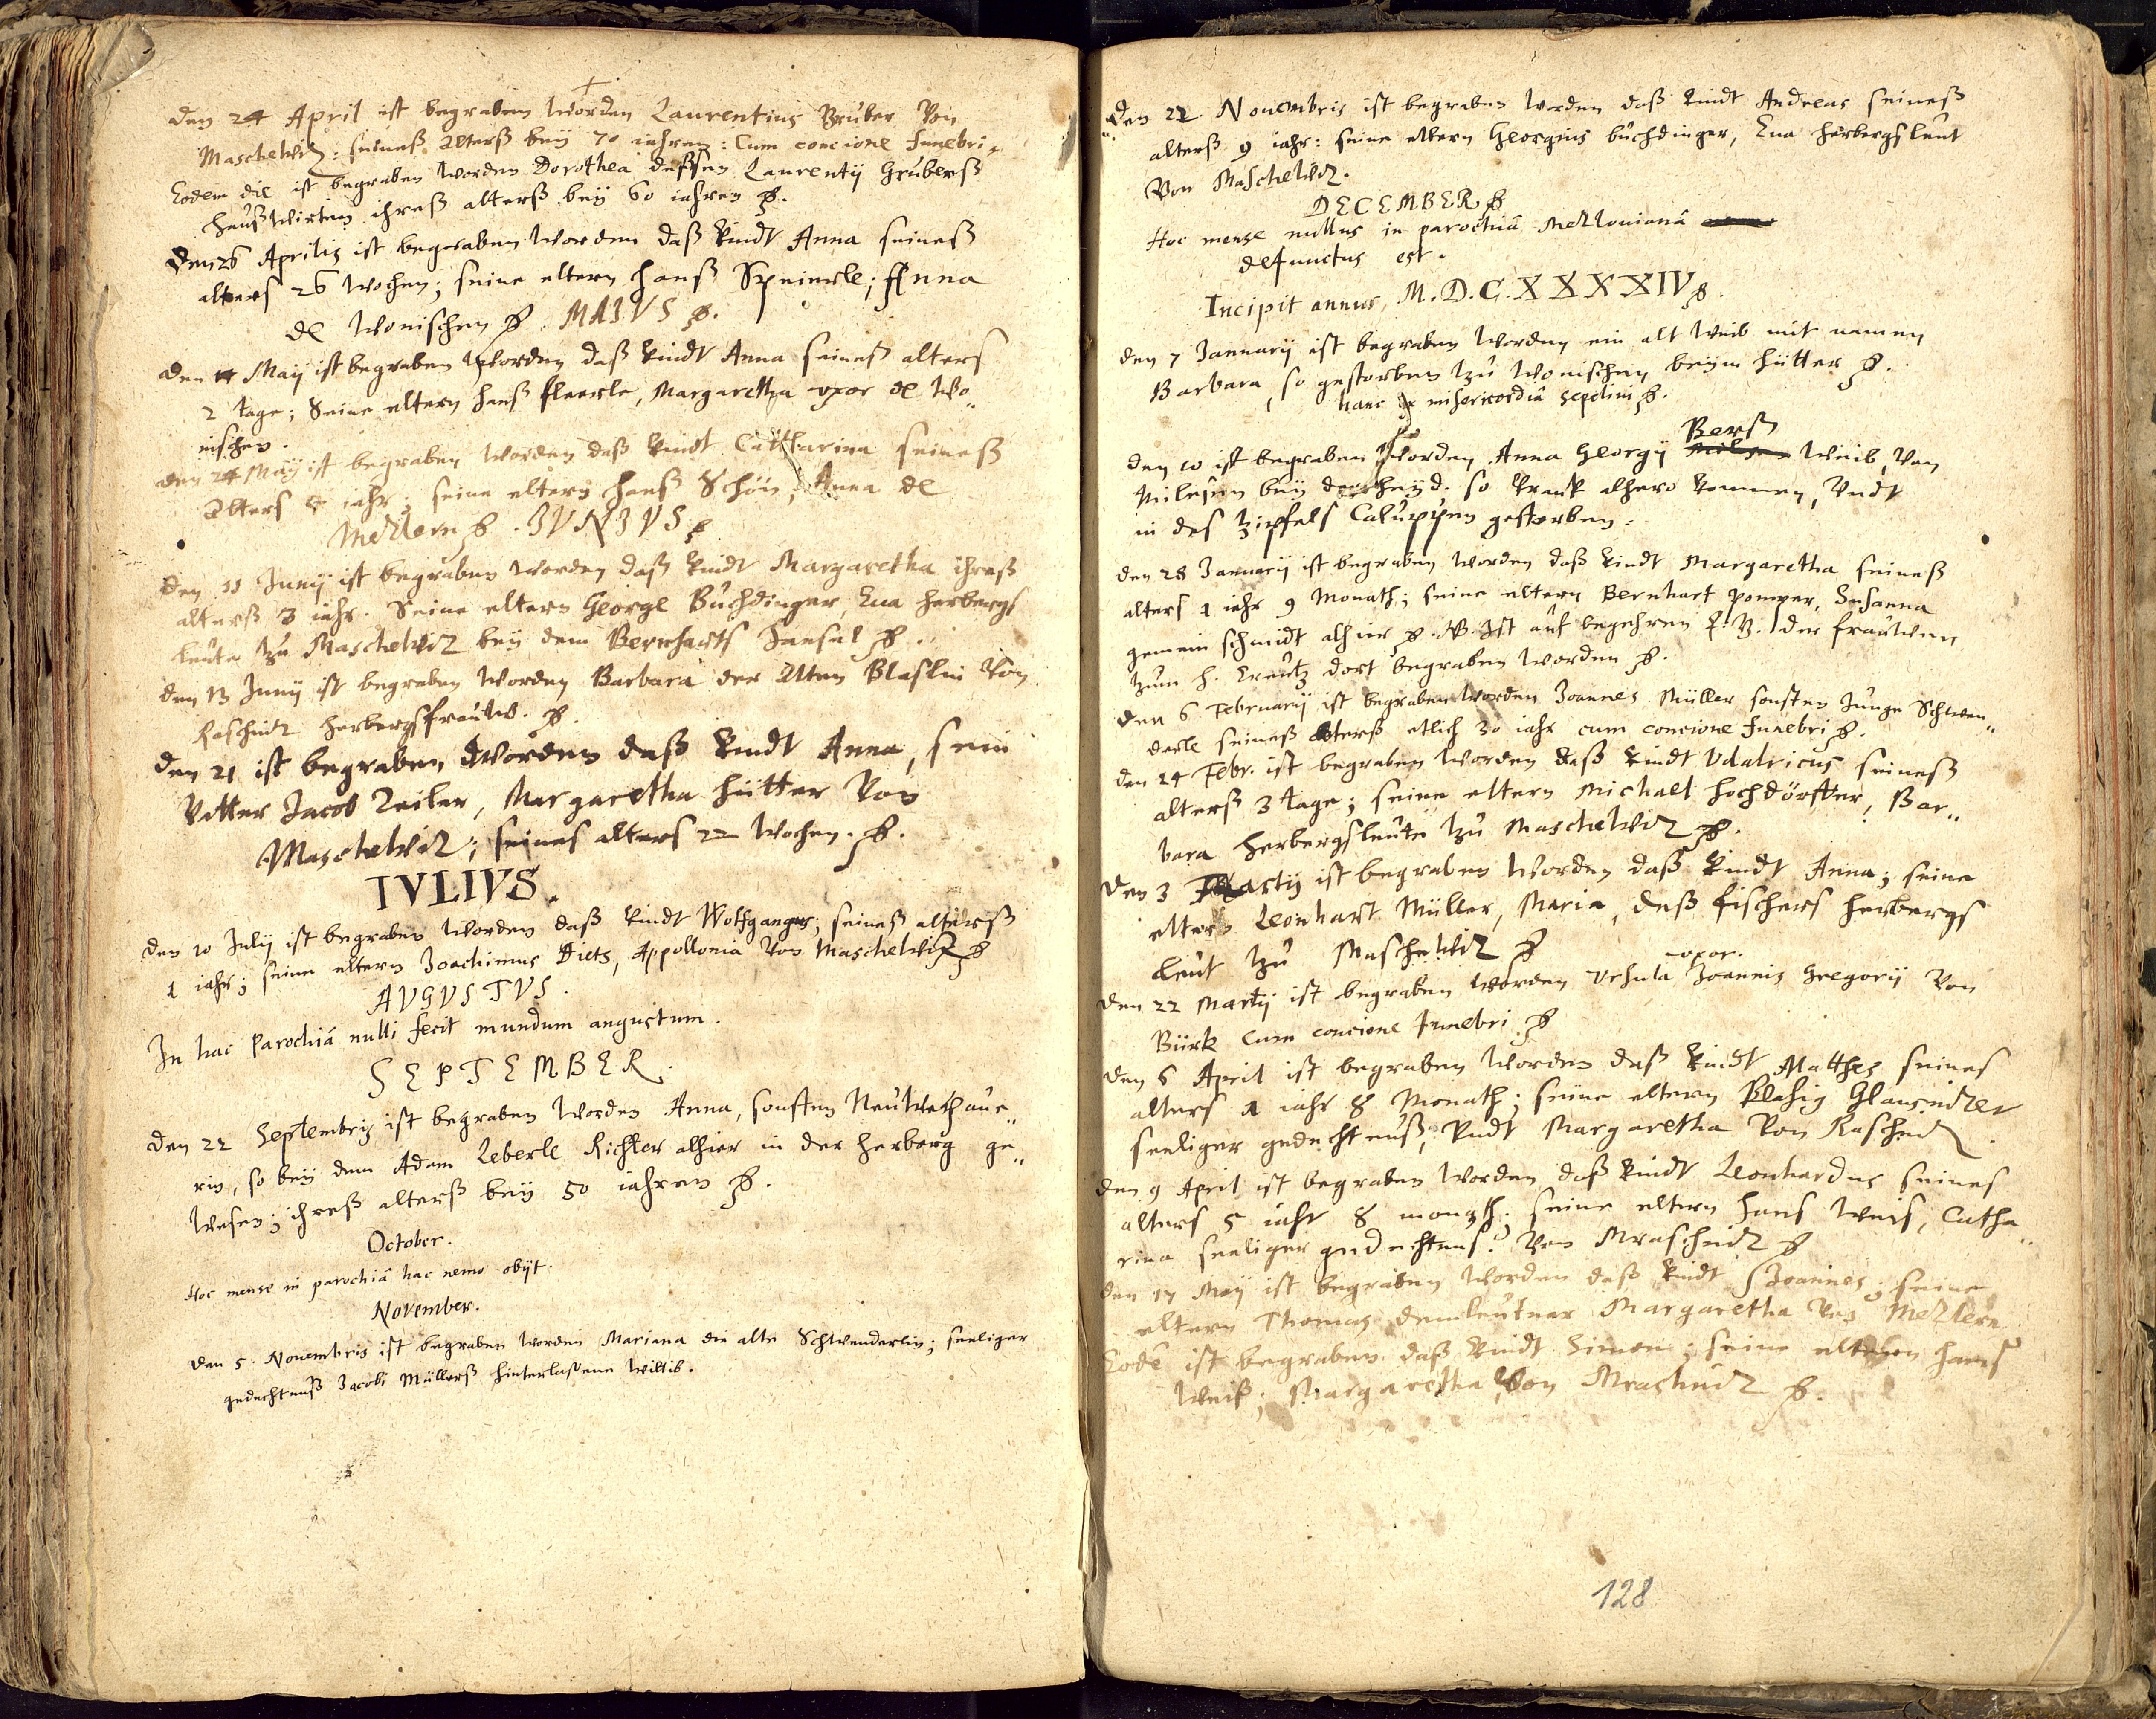 den 24 April ist begraben worden Laurentius Gruber Von
Maschewitz: seineß Alterß beÿ 70 iahren: Cum concione funebri.
Eodem die ist begraben worden Dorothea deßsen Laurentÿ Grüberß
haußwirtin ihreß alterß beÿ 60 iahren
Den 26 Aprilis ist begraben worden daß kindt Anna seineß
alters 26 wochen; seine eltern hanß Speinerle; Anna
de Wonischen MAIVS
den 11 Maÿ ist begraben worden daß kindt Anna seines alters
2 tage; Seine eltern hanß fleerle, Margaretha vxor de Wo„
nischen.
den 24 Maÿ ist begraben worden daß kindt Catharina seineß
Alters iahr; seine eltern hanß Schön; Anna de
Metlern IVNIVS
den 11 Junÿ ist begraben worden daß kindt Margaretha ihreß
alterß 3 iahr. Seine eltern George Buchdinger, Eua herbergs
leute zu Maschewitz beÿ dem Bernharts Hansel
den 13 Junÿ ist begraben worden Barbara der Alten Blaslin Von
Raschnitz herbergsfrauw.
den 21 ist begraben worden daß kindt Anna, sein
Vatter Jacob Zeiler, Margaretha hütter Von
Maschewitz; seines alters 22 wochen.
IVLIVS.
den 20 Julÿ ist begraben worden daß kindt Wolfgangus; seineß alterß
1 iahr; seine eltern Joachimus Diets, Appollonia Von Maschewitz
AVGVSTVS.
In hac Parochiâ nulli fecit mundum angustum.
SEPTEMBER.
den 22 Septembris ist begraben worden Anna, sonsten Neuwethaue„
rin, so beÿ dem Adam Leberle Richter alhier in der herberg ge„
wesen; ihreß alterß beÿ 50 iahren
October.
Hoc mense in parochiâ hac nemo obÿt.
November.
den 5. Nouembris ist begraben worden Mariana die alte Schwenderlin; seeliger
gedechtnuß Jacobi Müllerß hinterlaßene wittib.
Den 22 Nouembris ist begraben worden daß kindt Andreas seineß
alterß 9 iahr: seine eltern Georgius buchdinger, Eua herbergsleut
Von Maschewitz.
DECEMBER
Hoc mense nullus in parochiâ Metlouianâ
defunctus est.
Incipit annus, M.D.C.XXXXIV
den 7 Januarÿ ist begraben worden ein alt weib mit namen
Barbara, so gestorben zu Wonischen beÿm hütter
hanc ex misericordiâ sepeliui
den 10 ist begraben worden Anna Georgÿ Berß weib, Von
Milesen beÿ so krank alhero kommen, Vndt
in des Zipfels Caluppen gestorben.
den 28 Januarÿ ist begraben worden daß kindt Margaretha seineß
alters 1 iahr 9 Monath; seine eltern Bernhart Susanna
gemein schmidt alhier NB. Ist auf begehren der frauwen
zum h. Creutz dort begraben worden
den 6 Februarÿ ist begraben worden Joannes Müller sonsten Junge Schwen„
derle seineß Alterß etlich 30 iahr cum concione funebri
den 24 Febr. ist begraben worden daß kindt Vdalricus seineß
alterß 3 tage; seine eltern Michael hochdörffer, Bar„
bara herbergsleute zu Maschewitz
den 3 Martÿ ist begraben worden daß kindt Anna; seine
eltern Leonhart Müller, Maria, deß fischers herbergs
leut zu Maschewitz
vxor.
den 22 Martÿ ist begraben worden Vrsula Joannis Gregorÿ Von
Bürk cum concione funebri
den 6 April ist begraben worden daß kindt Matthes seines
alters 1 iahr 8 Monath; seine eltern Blasig
seeliger gedechtnuß, Vndt Margaretha Von Raschnitz.
den 9 April ist begraben worden daß kindt Leonhardus seines
alters 5 iahr 8 monath. seine eltern hans weis, Catha„
rina seeliger gedechtnus: Von Mraschnitz
den 17 Maÿ ist begraben worden daß kindt Joannes; seine
eltern Thomas Margaretha Von Metlern
Eodê ist begraben daß kindt Simon; seine eltern hanß
weiß; Margaretha Von Mraschnitz
128